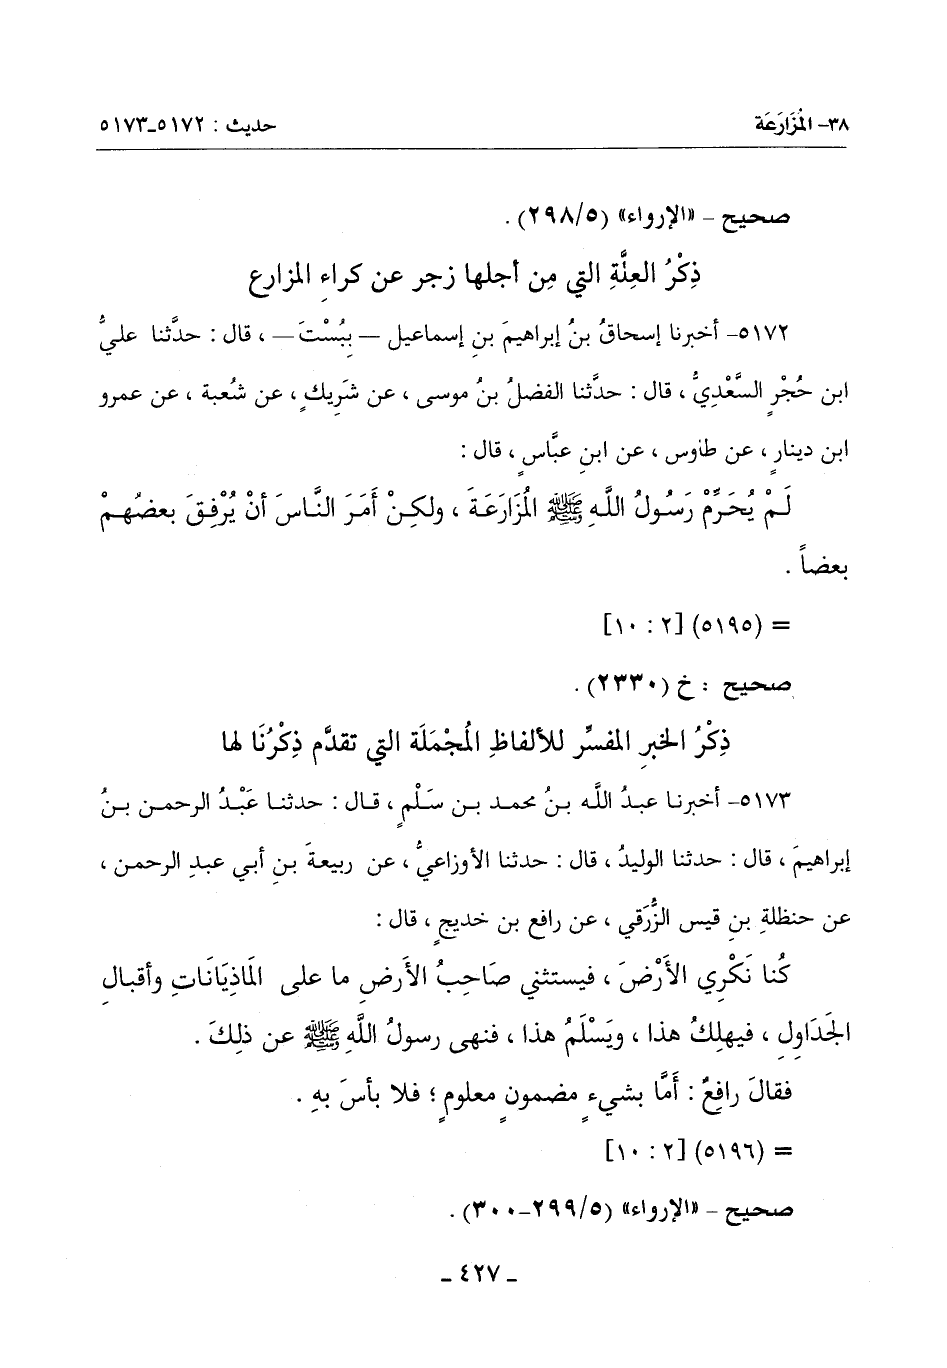 ٣٨- المُزَارَعَة
حديث : ٥١٧٢-٥١٧٣
صحيح - «الإرواء» (٢٩٨/٥) .
ذِكْرُ العِلَّةِ التي مِن أجلها زجر عن كراءِ المزارع
٥١٧٢- أخبرنا إسحاقُ بنُ إبراهيمَ بنِ إسماعيل — بِبُسْتَ — ، قال : حدَّثنا عليُّ
ابن حُجْرٍ السَّعْدِيُّ ، قال : حدَّثنا الفضلُ بنُ موسى ، عن شَرِيكٍ ، عن شُعبة ، عن عمرو
ابن دينارٍ ، عن طاوس ، عن ابنِ عبَّاسٍ ، قال :
لَمْ يُحَرِّمْ رَسُولُ اللَّهِ ﷺ المُزَارَعَةَ ، ولكِنْ أَمَرَ النَّاسَ أنْ يُرْفِقَ بعضُهمْ
بعضاً .
= (٥١٩٥) [٢ : ١٠]
صحيح : خ (٢٣٣٠) .
ذِكْرُ الخبرِ المفسِّر للألفاظِ المُجْمَلَة التي تقدَّم ذِكْرُنَا لها
٥١٧٣- أخبرنا عبدُ اللَّه بنُ محمد بن سَلْمٍ ، قال : حدثنا عَبْدُ الرحمن بنُ
إبراهيمَ ، قال : حدثنا الوليدُ ، قال : حدثنا الأوزاعيُّ ، عن ربيعةَ بنِ أبي عبدِ الرحمن ،
عن حنظلةِ بنِ قيس الزُّرَقي ، عن رافع بن خديجٍ ، قال :
كُنا نَكْرِي الأَرْضَ ، فيستثني صَاحِبُ الأَرضِ ما على المَاذِيَانَاتِ وأقبالِ
الجَدَاوِلِ ، فيهلِكُ هذا ، ويَسْلَمُ هذا ، فنهى رسولُ اللَّهِ ﷺ عن ذلِكَ .
فقالَ رافِعٌ : أَمَّا بشيءٍ مضمونٍ معلومٍ ؛ فلا بأسَ بهِ .
= (٥١٩٦) [٢ : ١٠]
صحيح - «الإرواء» (٢٩٩/٥-٣٠٠) .
- ٤٢٧ -